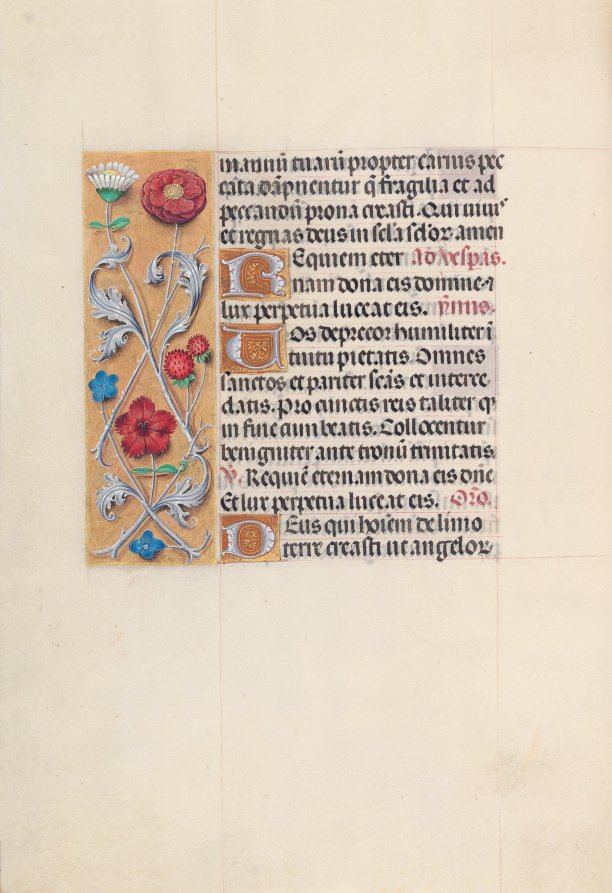 manuū tuarū propter carnis pec
cata dāpnentur q̄ fragilia et ad
peccandū prona creasti. Qui viuis
et regnas deus in scl̄a scl̄or amen
Requiem eter Ad vespas.
nam dona eis domine ⁊
lux perpetua luceat eis. ym̄is.
Vos deprecor humiliter ī
tuitu pietatis. Omnes
sanctos et pariter scās et interce
datis. Pro cunctis reis taliter qͥ
in fine cum beatis. Collocentur
benigniter ante tronū trinitatis.
℣. Requiē eternam dona eis dn̄e
Et lux perpetua luceat eis. Or̄o.
Deus qui hoīem de limo
terre creasti ut angelor